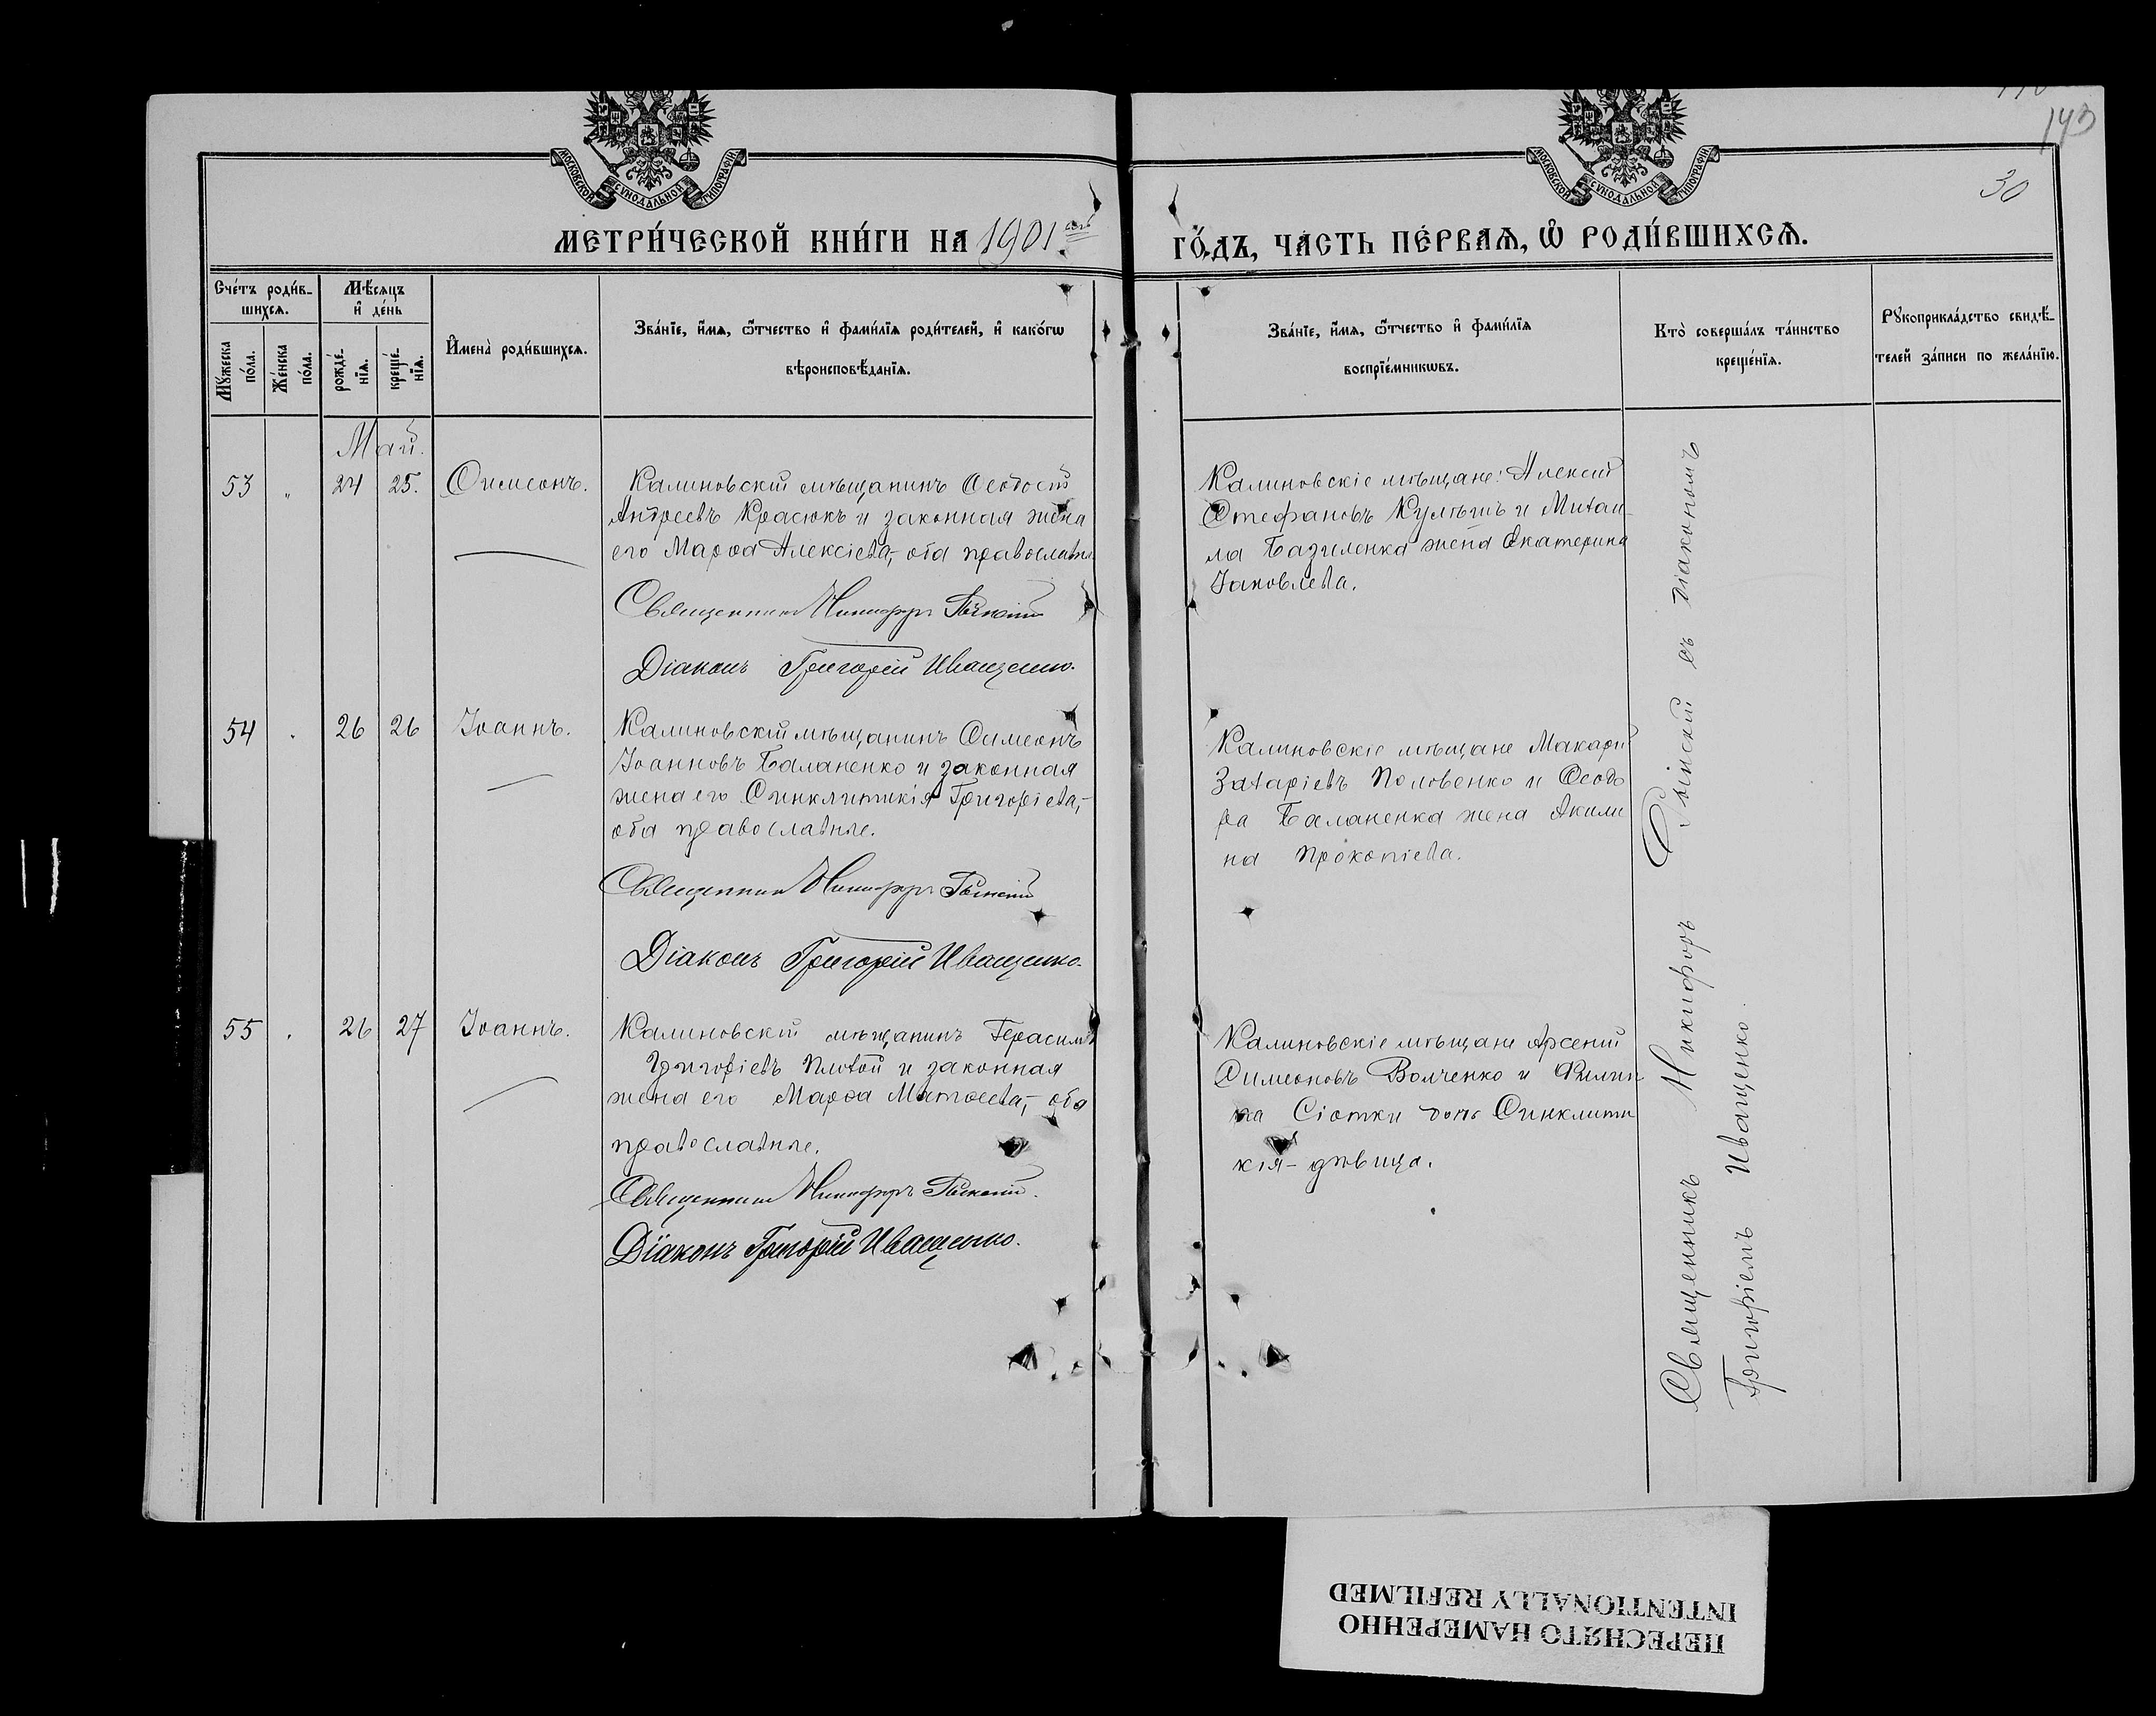 143
30
МОСКОВСКОЙ СѴНОДАЛЬНОЙ ТИПОГРАФІИ
МОСКОВСКОЙ СѴНОДАЛЬНОЙ ТИПОГРАФІИ
МЕТРИ́ЧЕСКОЙ КНИ́ГИ НА 1901 ГО́ДЪ, ЧА́СТЬ ПЕ́РВАѦ, Ѡ҆ РОДИ́ВШИХСѦ.
Сче́тъ роди́в-
шихсѧ.
Мѣ́сѧцъ
и҆ де́нь
Мꙋ́жеска
по́ла.
Же́нска
по́ла.
рожде́-
нїѧ.
креще́-
нїѧ.
И҆мена̀ роди́вшихсѧ.
Зва́нїе, и҆́мѧ, ѻ҆́тчество и҆ фами́лїѧ роди́телей, и҆ како́гѡ
вѣроисповѣ́данїѧ.
Зва́нїе, и҆́мѧ, ѻ҆́тчество и҆ фами́лїѧ
воспрїе́мникѡвъ.
Кто̀ соверша́лъ та́инство
креще́нїѧ.
Рꙋкоприкла́дство свидѣ́-
телей за́писи по жела́нїю.
Май.
53 " 24 25. Симеонъ.
Калиновскій мѣщанинъ Ѳеодосій
Андреевъ Красюкъ и законная жена
его Марѳа Алексіева,- оба православн
Священникъ Никифоръ
Діаконъ Григорій Иващенко.
Калиновскіе мѣщане: Алексій
Стефановъ и Михаи-
ла Базиленка жена Екатерина
Іаковлева.
54 . 26 26 Іоаннъ.
Калиновскій мѣщанинъ Симеонъ
Іоанновъ Баланенко и законная
жена его Синклитикія Григоріева,-
оба православные.
Священникъ Никифоръ
Діаконъ Григорій Иващенко.
Калиновскіе мѣщане Макарій
Захаріевъ Половенко и Ѳеодо
ра Баланенка жена Акили
на Прокопіева.
55 . 26 27 Іоаннъ.
Калиновскій мѣщанинъ Герасимъ
Григоріевъ Плохой и законная
жена его Марѳа Матѳеева,- оба
православные.
Священникъ Никифоръ
Діаконъ Григорій Иващенко.
Калиновскіе мѣщане Арсеній
Симеоновъ Волченко и Филип
па Сіотки дочь Синклити
кія - дѣвица.
Священникъ Никифоръ съ діакономъ
Григоріемъ Иващенко.
ПЕРЕСНЯТО НАМЕРЕННО
INTENTIONALLY REFILMED